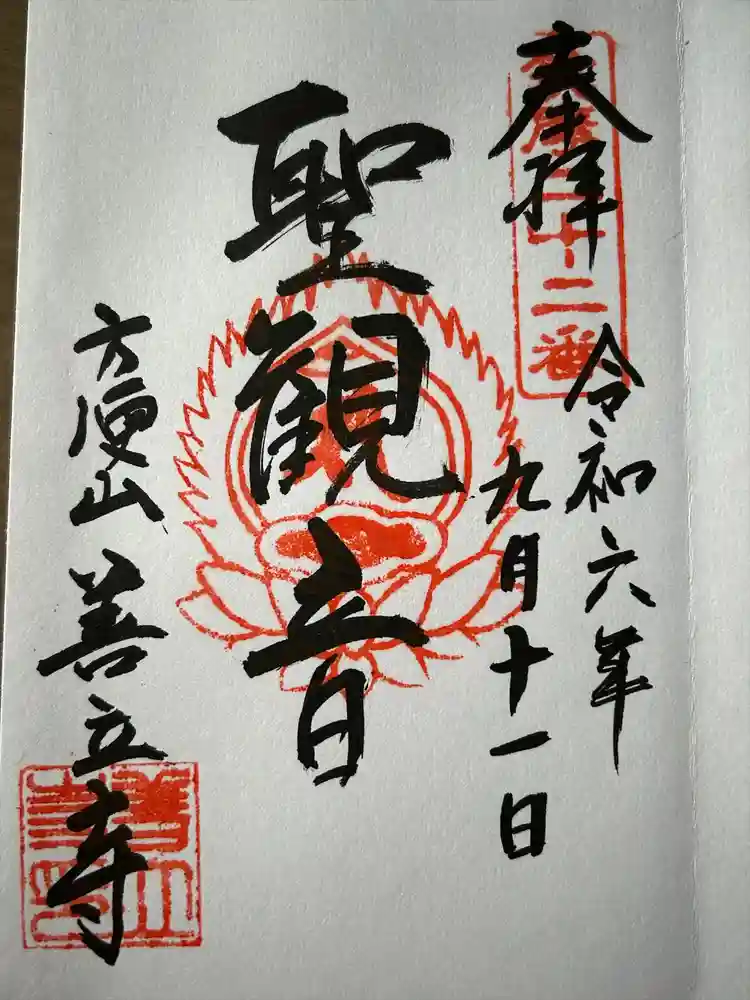 奉拝
十二番
令和六年
九月十一日
聖観音
方便山
善立寺